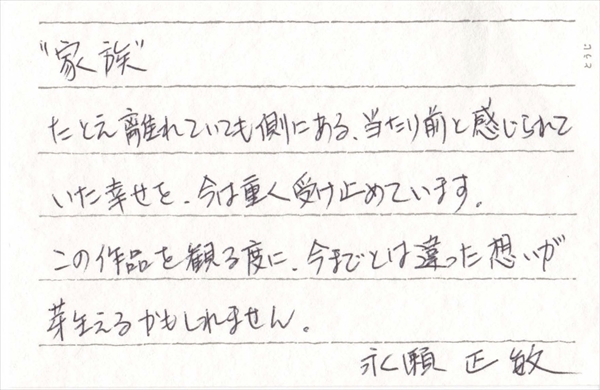 "家族"
たとえ離れていても側にある、当たり前と感じられて
いた幸せを、今は重く受け止めています。
この作品を観る度に、今までとは違った想いが
芽生えるかもしれません。
永瀬正敏